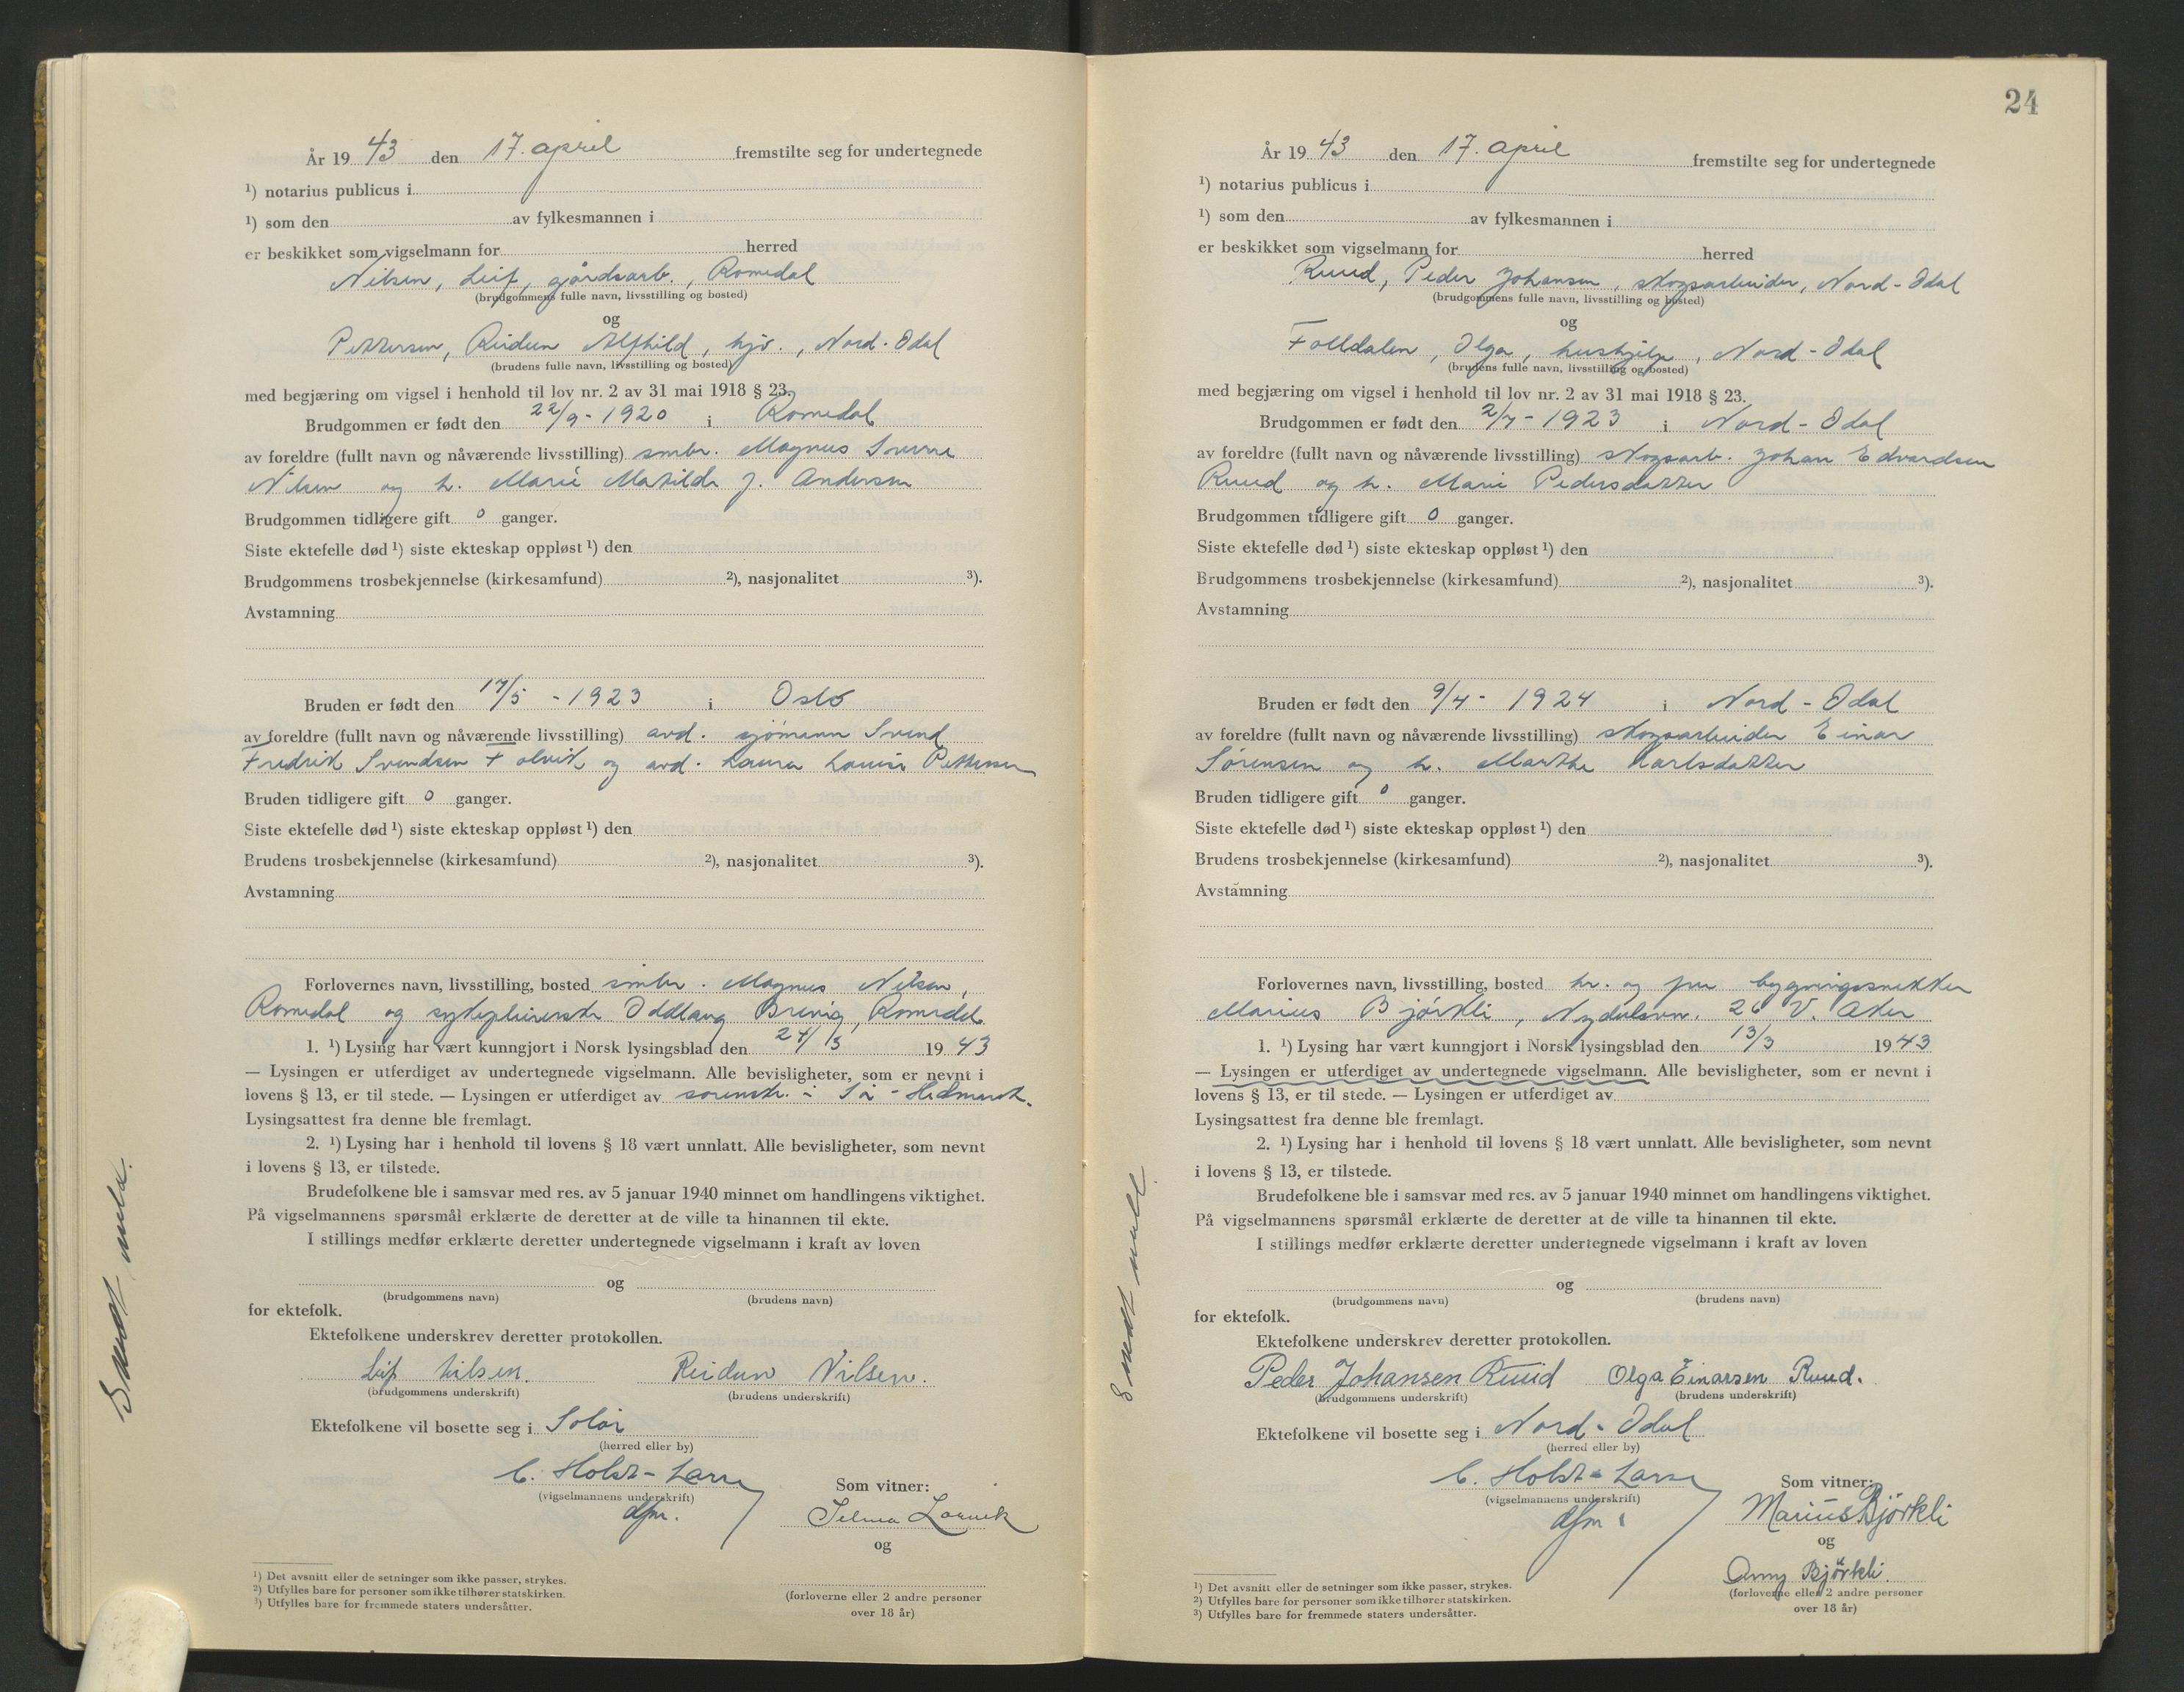 År 19 43 den 17. april fremstilte seg for undertegnede
¹) notarius publicus i
¹) som den av fylkesmannen i
er beskikket som vigselmann for herred
Nilsen, Leif, gårdsarb., Romedal
(brudgommens fulle navn, livsstilling og bosted)
og
Pettersen, Reidun Alfhild, hjv., Nord-Odal
(brudens fulle navn, livsstilling og bosted)
med begjæring om vigsel i henhold til lov nr. 2 av 31 mai 1918 § 23.
Brudgommen er født den 22/9 - 1920 i Romedal
av foreldre (fullt navn og nåværende livsstilling) smbr. Magnus Sverre
Nilsen og h. Marie Matilde J. Andersen
Brudgommen tidligere gift 0 ganger.
Siste ektefelle død ¹) siste ekteskap oppløst ¹) den
Brudgommens trosbekjennelse (kirkesamfund) ²), nasjonalitet ³).
Avstamning
Bruden er født den 17/5 - 1923 i Oslo
av foreldre (fullt navn og nåværende livsstilling) avd. sjømann Svend
Fredrik Svendsen Folvik og avd. Laura Louise Pettersen
Bruden tidligere gift 0 ganger.
Siste ektefelle død ¹) siste ekteskap oppløst ¹) den
Brudens trosbekjennelse (kirkesamfund) ²), nasjonalitet ³).
Avstamning
Forlovernes navn, livsstilling, bosted smbr. Magnus Nilsen,
Romedal og sykepleierske Oddlaug Brenig, Romedal
1. ¹) Lysing har vært kunngjort i Norsk lysingsblad den 24/3 19 43
— Lysingen er utferdiget av undertegnede vigselmann. Alle bevisligheter, som er nevnt i
lovens § 13, er til stede. — Lysingen er utferdiget av sorenskr. i Sø-Hedmark.
Lysingsattest fra denne ble fremlagt.
2. ¹) Lysing har i henhold til lovens § 18 vært unnlatt. Alle bevisligheter, som nevnt
i lovens § 13, er tilstede.
Brudefolkene ble i samsvar med res. av 5 januar 1940 minnet om handlingens viktighet.
På vigselmannens spørsmål erklærte de deretter at de ville ta hinannen til ekte.
I stillings medfør erklærte deretter undertegnede vigselmann i kraft av loven
og
(brudgommens navn) (brudens navn)
for ektefolk.
Ektefolkene underskrev deretter protokollen.
Leif Nilsen. Reidun Nilsen.
(brudgommens underskrift) (brudens underskrift)
Ektefolkene vil bosette seg i Solør
(herred eller by)
C. Holst-Larsen
(vigselmannens underskrift)
dfm.
Som vitner:
Selma Larvik
og
(forloverne eller 2 andre personer
over 18 år)
¹) Det avsnitt eller de setninger som ikke passer, strykes.
²) Utfylles bare for personer som ikke tilhører statskirken.
³) Utfylles bare for fremmede staters undersåtter.
Sendt meld.
24
År 19 43 den 17. april fremstilte seg for undertegnede
¹) notarius publicus i
¹) som den av fylkesmannen i
er beskikket som vigselmann for herred
Ruud, Peder Johansen, skogsarbeider, Nord-Odal
(brudgommens fulle navn, livsstilling og bosted)
og
Folldalen, Olga, hushjelp, Nord-Odal
(brudens fulle navn, livsstilling og bosted)
med begjæring om vigsel i henhold til lov nr. 2 av 31 mai 1918 § 23.
Brudgommen er født den 2/7 - 1923 i Nord-Odal
av foreldre (fullt navn og nåværende livsstilling) skogsarb. Johan Edvardsen
Ruud og h. Marie Pedersdatter
Brudgommen tidligere gift 0 ganger.
Siste ektefelle død ¹) siste ekteskap oppløst ¹) den
Brudgommens trosbekjennelse (kirkesamfund) ²), nasjonalitet ³).
Avstamning
Bruden er født den 9/4 - 1924 i Nord-Odal
av foreldre (fullt navn og nåværende livsstilling) skogsarbeider Einar
Sørensen og h. Marthe Karlsdatter
Bruden tidligere gift 0 ganger.
Siste ektefelle død ¹) siste ekteskap oppløst ¹) den
Brudens trosbekjennelse (kirkesamfund) ²), nasjonalitet ³).
Avstamning
Forlovernes navn, livsstilling, bosted hr. og fru bygningssnekker
Marius Bjørkli, Nydalsvn. 26 V. Aker
1. ¹) Lysing har vært kunngjort i Norsk lysingsblad den 13/3 19 43
— Lysingen er utferdiget av undertegnede vigselmann. Alle bevisligheter, som er nevnt i
lovens § 13, er til stede. — Lysingen er utferdiget av
Lysingsattest fra denne ble fremlagt.
2. ¹) Lysing har i henhold til lovens § 18 vært unnlatt. Alle bevisligheter, som nevnt
i lovens § 13, er tilstede.
Brudefolkene ble i samsvar med res. av 5 januar 1940 minnet om handlingens viktighet.
På vigselmannens spørsmål erklærte de deretter at de ville ta hinannen til ekte.
I stillings medfør erklærte deretter undertegnede vigselmann i kraft av loven
og
(brudgommens navn) (brudens navn)
for ektefolk.
Ektefolkene underskrev deretter protokollen.
Peder Johansen Ruud Olga Einarsen Ruud.
(brudgommens underskrift) (brudens underskrift)
Ektefolkene vil bosette seg i Nord-Odal
(herred eller by)
C. Holst-Larsen
(vigselmannens underskrift)
dfm.
Som vitner:
Marius Bjørkli
og
Anny Bjørkli.
(forloverne eller 2 andre personer
over 18 år)
¹) Det avsnitt eller de setninger som ikke passer, strykes.
²) Utfylles bare for personer som ikke tilhører statskirken.
³) Utfylles bare for fremmede staters undersåtter.
Sendt meld.